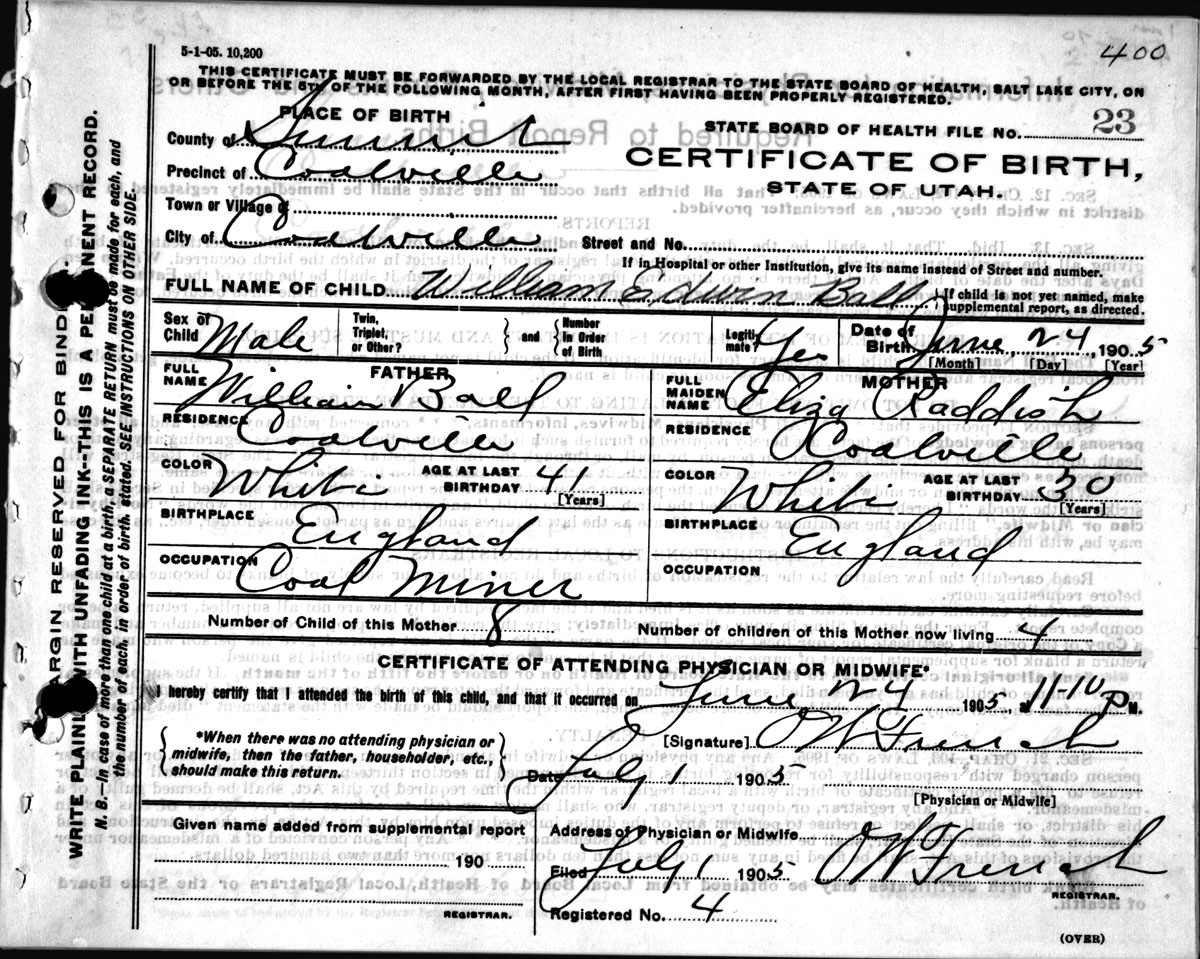 5-1-05. 10,200
400
THIS CERTIFICATE MUST BE FORWARDED BY THE LOCAL REGISTRAR TO THE STATE BOARD OF HEALTH, SALT LAKE CITY, ON
OR BEFORE THE 5TH OF THE FOLLOWING MONTH, AFTER FIRST HAVING BEEN PROPERLY REGISTERED.
PLACE OF BIRTH
STATE BOARD OF HEALTH FILE No. 23
County of Summit
CERTIFICATE OF BIRTH,
Precinct of Coalville
STATE OF UTAH.
Town or Village of
City of Coalville Street and No.
If in Hospital or other Institution, give its name instead of Street and number.
FULL NAME OF CHILD William Edwin Ball
{If child is not yet named, make
supplemental report, as directed.
Sex of Child Male
Twin, Triplet, or Other?
} and {
Number in Order of Birth
Legiti-mate? Yes
Date of Birth June 24 1905
[Month] [Day] [Year]
FATHER
FULL NAME William Ball
RESIDENCE Coalville
COLOR White AGE AT LAST BIRTHDAY 41
[Years]
BIRTHPLACE England
OCCUPATION Coal Miner
MOTHER
FULL MAIDEN NAME Eliza Raddish
RESIDENCE Coalville
COLOR White AGE AT LAST BIRTHDAY 30
[Years]
BIRTHPLACE England
OCCUPATION
Number of Child of this Mother 8 Number of children of this Mother now living 4
CERTIFICATE OF ATTENDING PHYSICIAN OR MIDWIFE
I hereby certify that I attended the birth of this child, and that it occurred on June 24 1905, at 11-10 P M.
{*When there was no attending physician or
midwife, then the father, householder, etc.,
should make this return.}
[Signature] O W French
Date July 1 1905
[Physician or Midwife]
Given name added from supplemental report
190
REGISTRAR.
Address of Physician or Midwife
Filed July 1 1905 O W French
REGISTRAR.
Registered No. 4
(OVER)
MARGIN RESERVED FOR BINDING.
WRITE PLAINLY WITH UNFADING INK--THIS IS A PERMANENT RECORD.
N. B.--In case of more than one child at a birth, a SEPARATE RETURN must be made for each, and
the number of each, in order of birth, stated. (SEE INSTRUCTIONS ON OTHER SIDE.